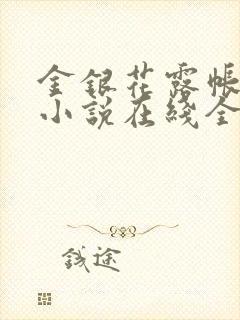 金銀花露帳
小說在綫全
錢途